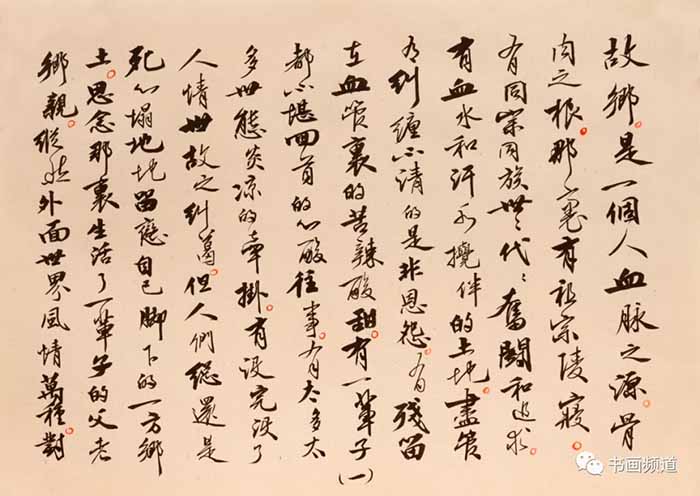 故鄉。是一個人血脉之源。骨
肉之根。那裏有祖宗陵寢。
有同宗同族世々代々奮鬪和追求。
有血水和汗水攪伴的土地。盡管
有糾纏不清的是非恩怨。有殘留
在血管裏的苦辣酸甜。有一輩子
都不堪回首的心酸往事。有太多太
多世態炎凉的牽掛。有没完没了
人情世故之糾葛。但人們總還是
死心塌地地留戀自己脚下的一方鄉
土。思念那裏生活了一輩子的父老
鄉親。縱然外面世界風情萬種。對
(一)
书画频道